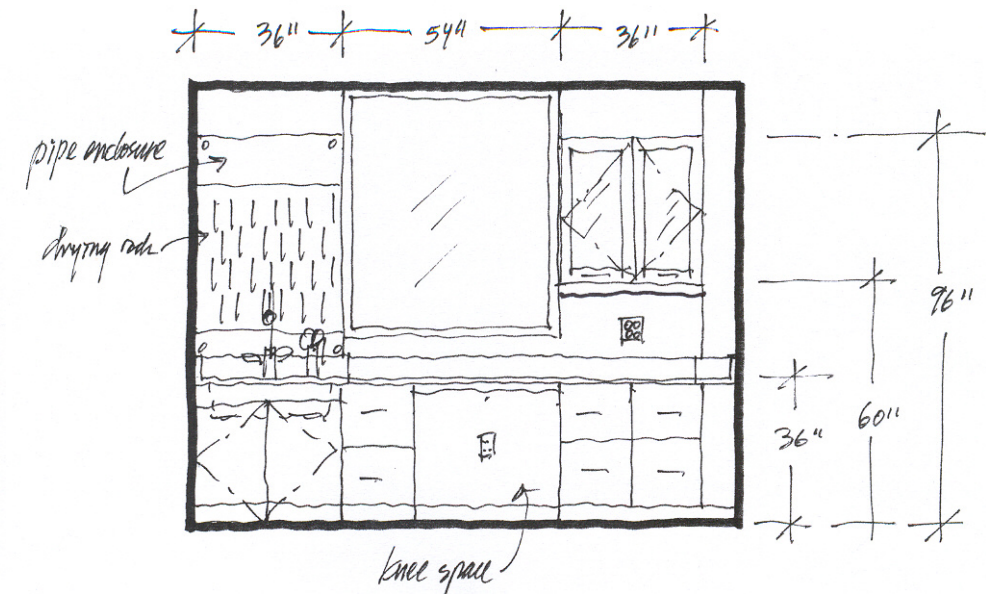 36" 54" 36"
pipe enclosure
drying rack
96"
60"
36"
knee space